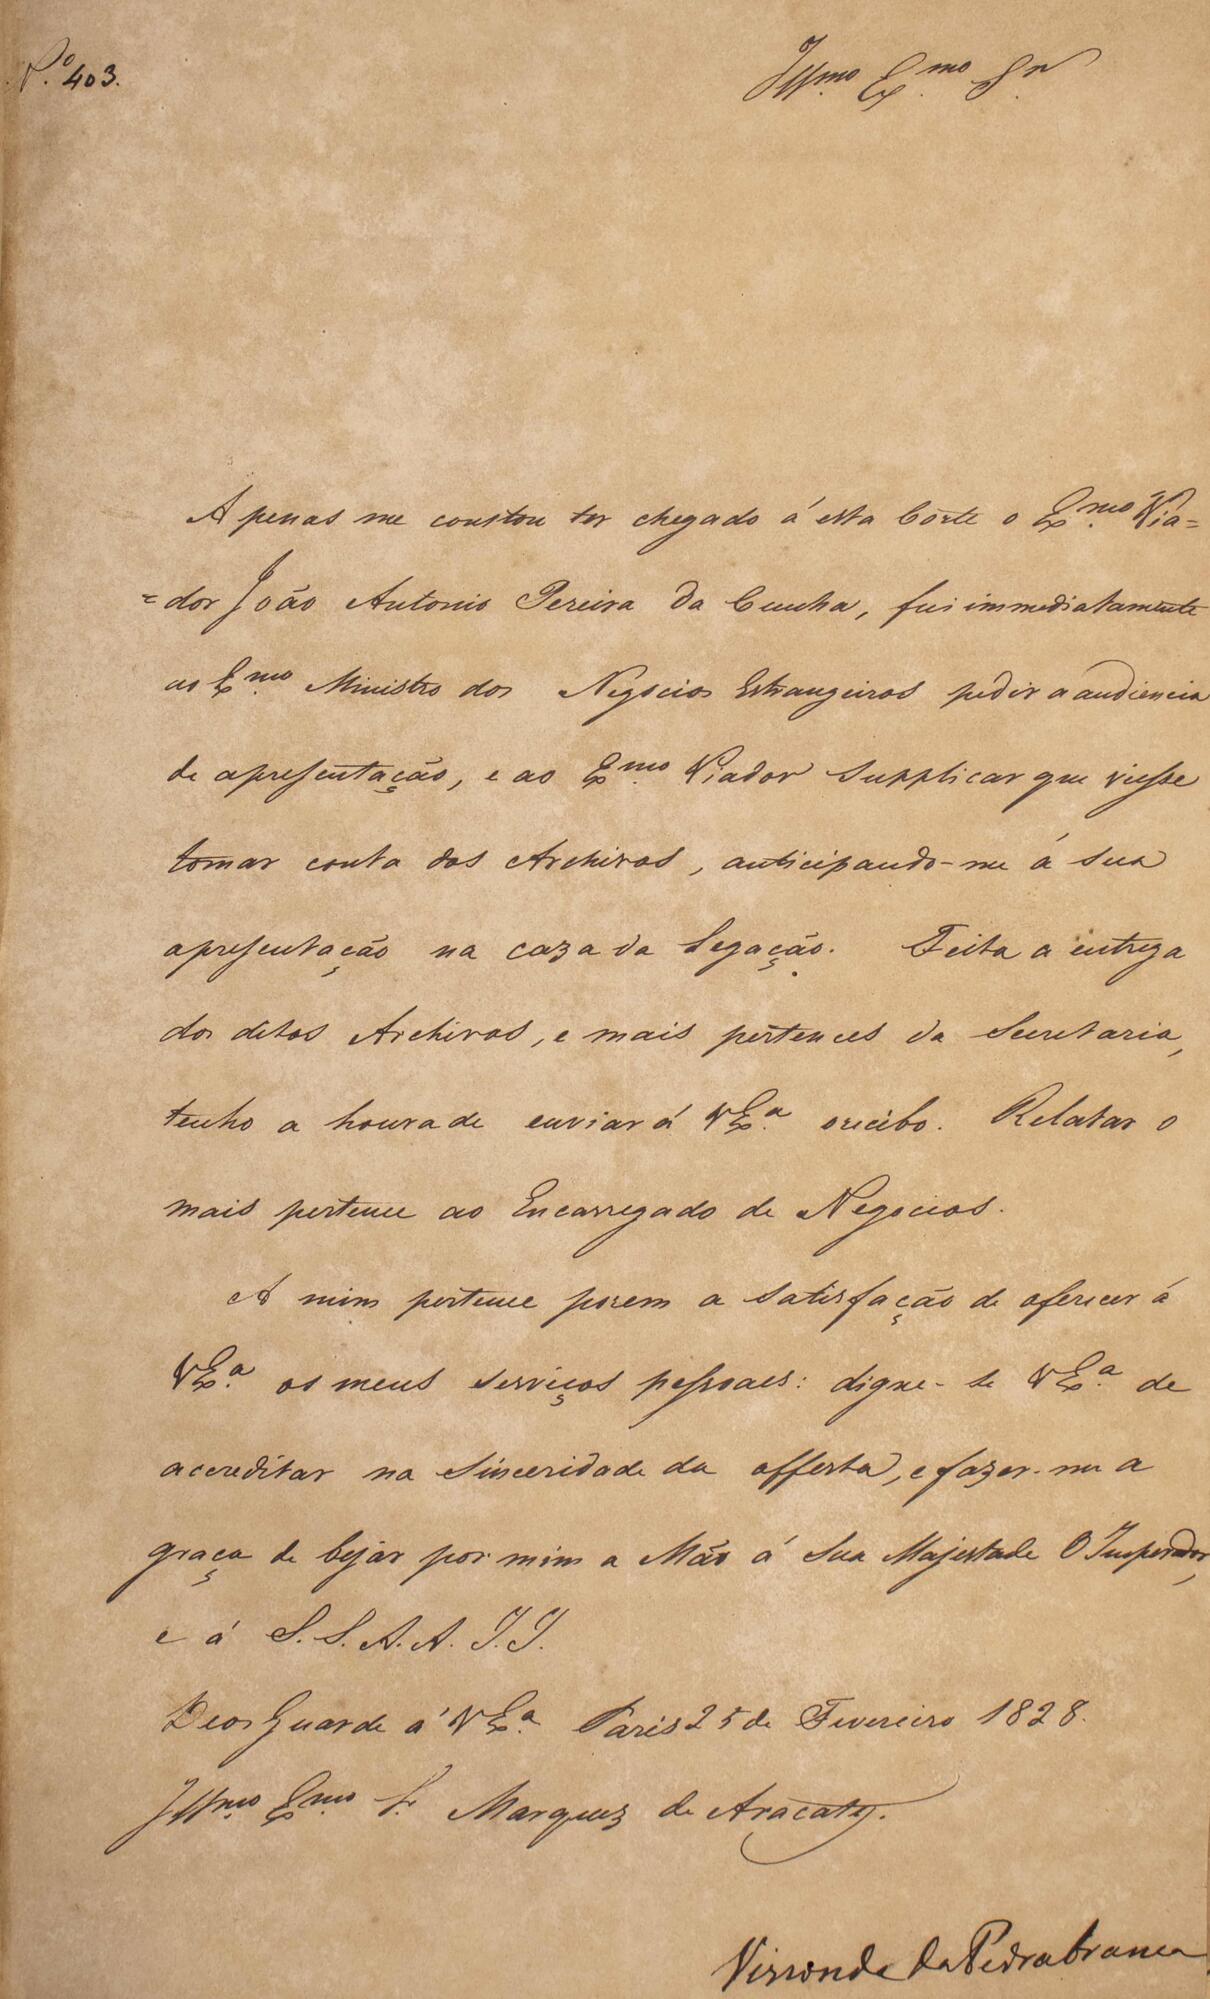 N.o 403.
Illmo Exmo Snr
Apenas me constou ter chegado á esta Corte o Exmo Via=
=dor João Antonio Pereira da Cunha, fui immediatamente
ao Exmo Ministro dos Negocios Estrangeiros pedir a audiencia
de apresentação, e ao Exmo Viador supplicar que viesse
tomar conta dos Archivos, anticipando-me á sua
apresentação na caza da Legação. Feita a entrega
dos ditos Archivos, e mais pertences da Secretaria,
tenho a honra de enviar á VExa o recibo. Relatar o
mais pertence ao Encarregado de Negocios.
A mim pertence porem a satisfação de oferecer á
VExa os meus serviços pessoaes: digne-se VExa de
acereditar na sinceridade da offerta, e fazer-me a
graça de bejar por mim a Mão á Sua Majestade O Imperador,
e á S.S.A.A.I.I.
Deos Guarde á VExa Paris 25 de Fevereiro 1828.
Illmo Exmo Sr Marquez de Aracaty.
Visconde da Pedra branca